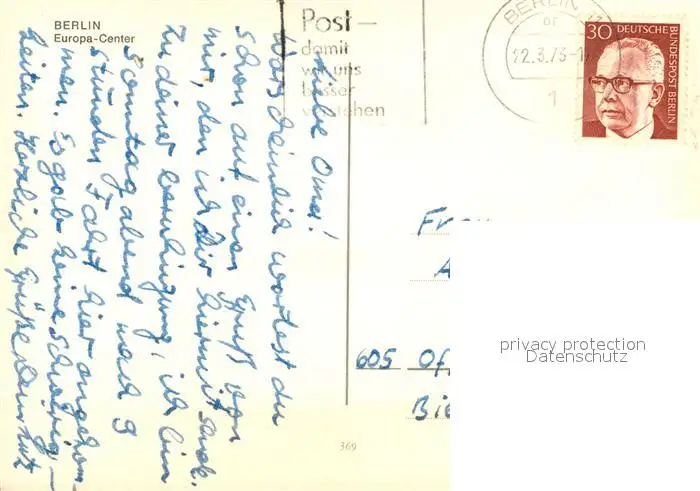 BERLIN
Europa-Center
Post -
damit
wir uns
besser
verstehen
BERLIN
22.3.73-1
1
30 DEUTSCHE
BUNDESPOST BERLIN
Liebe Oma!
Wahrscheinlich wartest du
schon auf einen Gruß von
mir, den ich Dir hiermit schick.
Zu deiner beruhigung, ich bin
Sonntag abend nach 9
stunden Fahrt hier angekom
men. Es gab keine schwierig-
keiten. Herzliche Grüße Dein Lutz
Fr
A
605 Of
Bie
369
privacy protection
Datenschutz